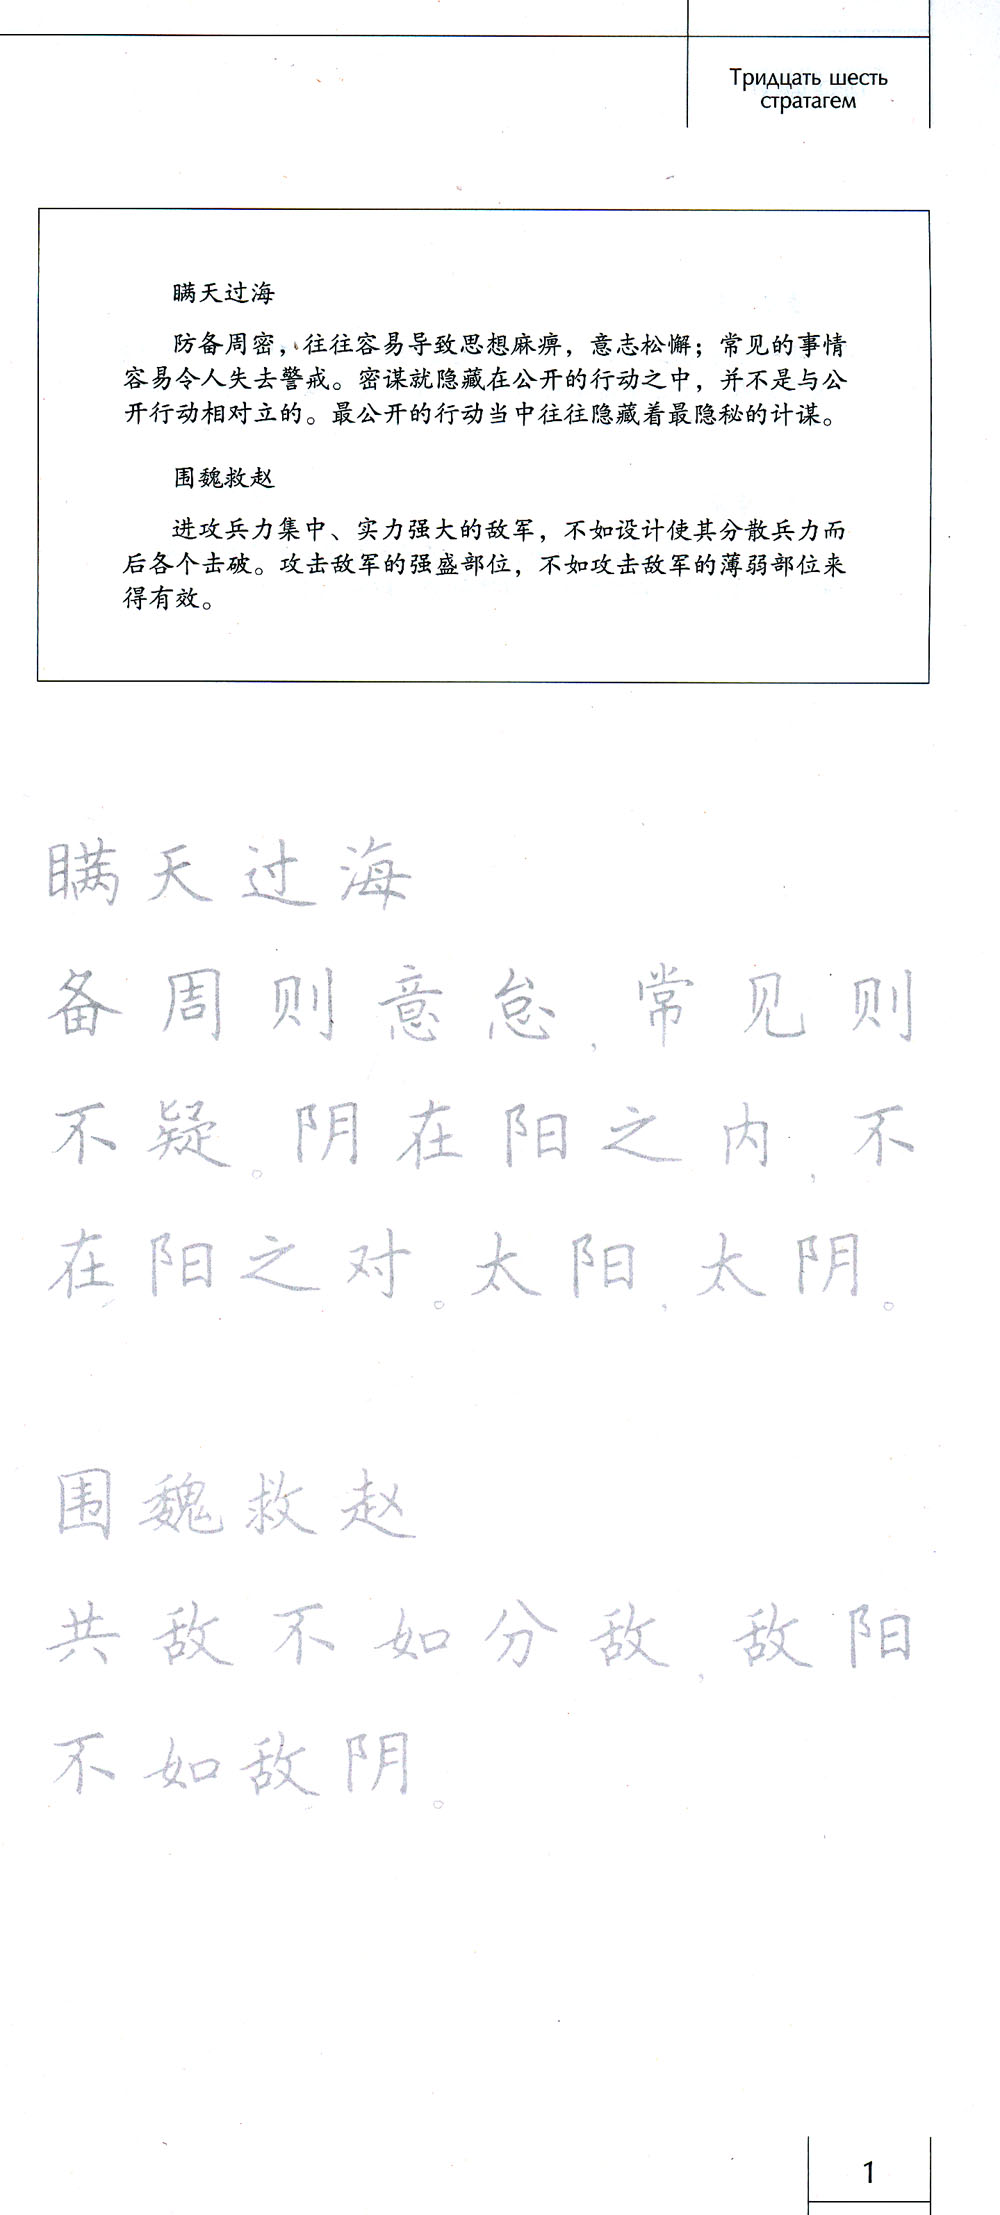 Тридцать шесть
стратагем
瞒天过海
防备周密，往往容易导致思想麻痹，意志松懈；常见的事情
容易令人失去警戒。密谋就隐藏在公开的行动之中，并不是与公
开行动相对立的。最公开的行动当中往往隐藏着最隐秘的计谋。
围魏救赵
进攻兵力集中、实力强大的敌军，不如设计使其分散兵力而
后各个击破。攻击敌军的强盛部位，不如攻击敌军的薄弱部位来
得有效。
瞒天过海
备周则意怠，常见则
不疑。阴在阳之内，不
在阳之对。太阳，太阴。
围魏救赵
共敌不如分敌，敌阳
不如敌阴。
1